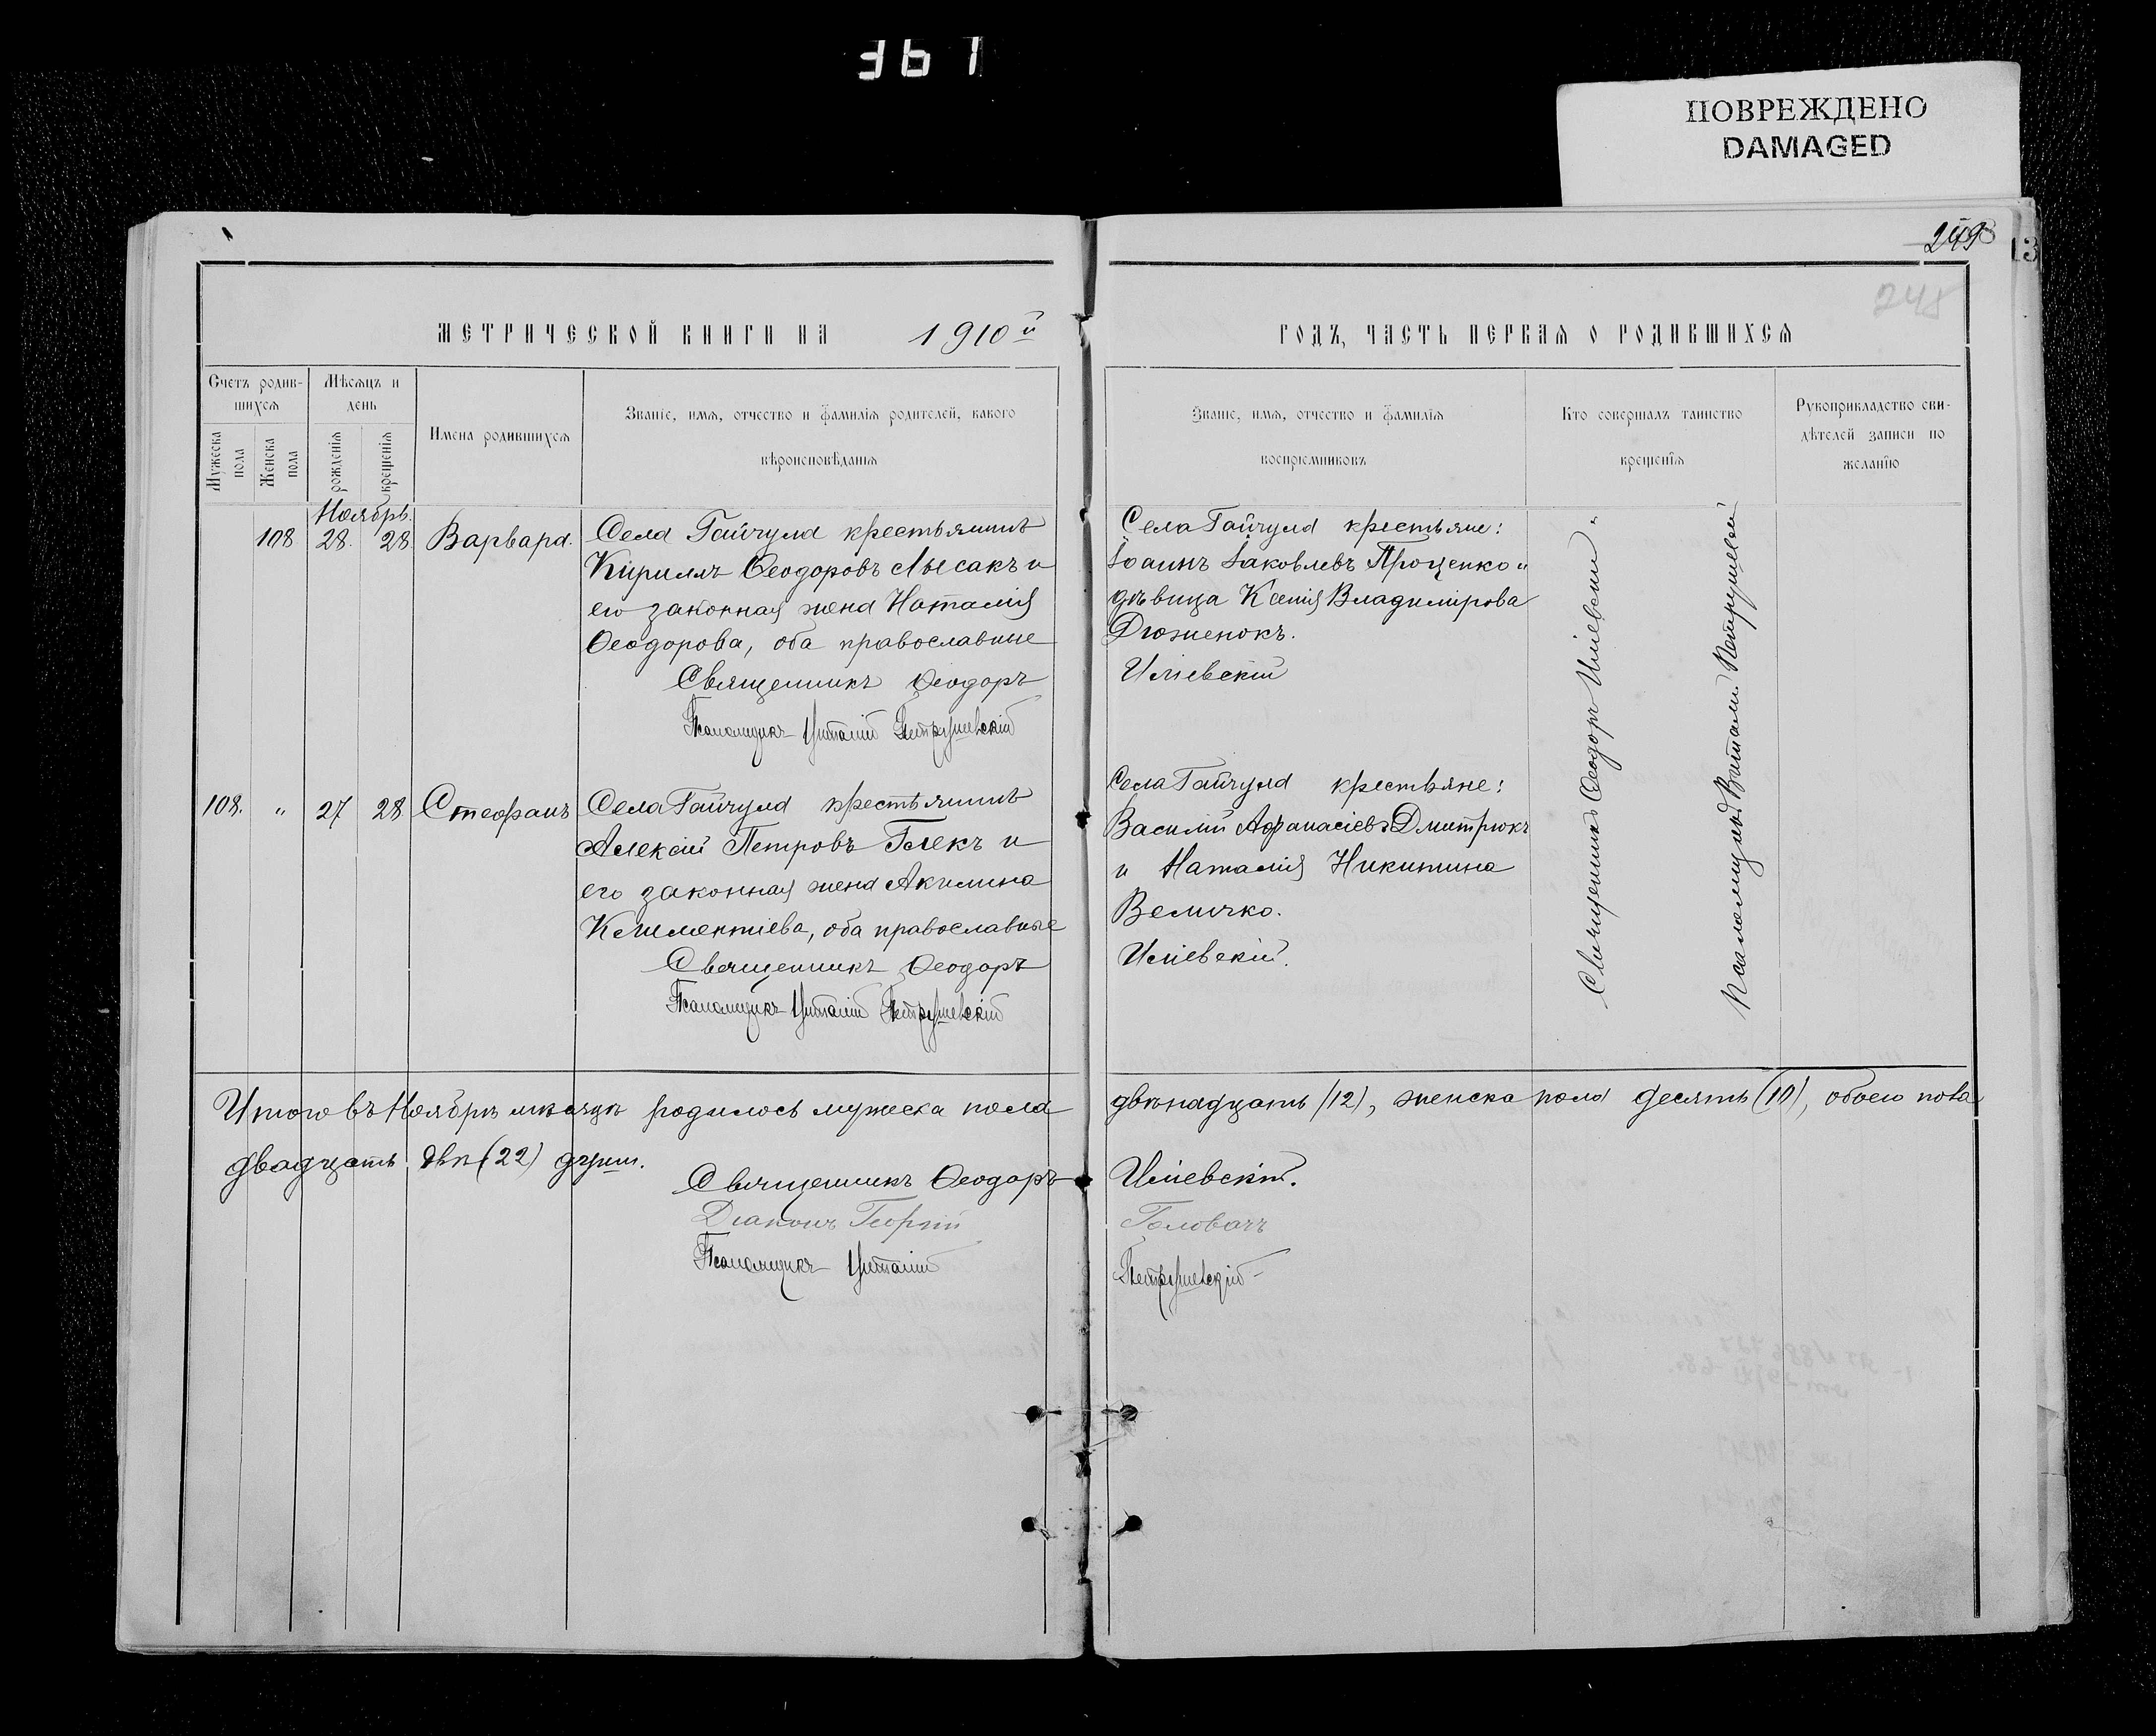 361
ПОВРЕЖДЕНО
DAMAGED
13
248
МЕТРИЧЕСКОЙ КНИГИ НА 1910й
ГОДЪ, ЧАСТЬ ПЕРВАЯ О РОДИВШИХСЯ
Счетъ родив-
шихся
Мужеска пола
Женска пола
Мѣсяцъ и
день
рожденія
крещенія
Имена родившихся
Званіе, имя, отчество и фамилія родителей, какого
вѣроисповѣданія
Званіе, имя, отчество и фамилія
воспріемниковъ
Кто совершалъ таинство
крещенія
Рукоприкладство сви-
дѣтелей записи по
желанію
Ноябрь.
108 28. 28. Варвара.
Села Гайчула крестьянинъ
Кириллъ Ѳеодоровъ Лысакъ и
его законная жена Наталія
Ѳеодорова, оба православные
Священникъ Ѳеодоръ
Псаломщикъ Виталій Петрушевскій
Села Гайчула крестьяне:
Іоаннъ Іаковлевъ Проценко и
дѣвица Ксенія Владимірова
Дюженокъ.
Иліевскій
Священникъ Ѳеодоръ Иліевскій "
Псаломщикъ Виталій Петрушевскій
108. " 27 28 Стефанъ
Села Гайчула крестьянинъ
Алексій Петровъ Гблекъ и
его законная жена Акилина
Климентіева, оба православные
Священникъ Ѳеодоръ
Псаломщикъ Виталій Петрушевскій
Села Гайчула крестьяне:
Василій Аѳанасіевъ Дмитрюкъ
и Наталія Никитина
Величко.
Иліевскій.
Итого въ Ноябрѣ мѣсяцѣ родилось мужеска пола двѣнадцать (12), женска пола десять (10), обоего пола
двадцать двѣ (22) душ.
Священникъ Ѳеодоръ Иліевскій.
Діаконъ Георгій Головачъ
Псаломщикъ Виталій Петрушевскій